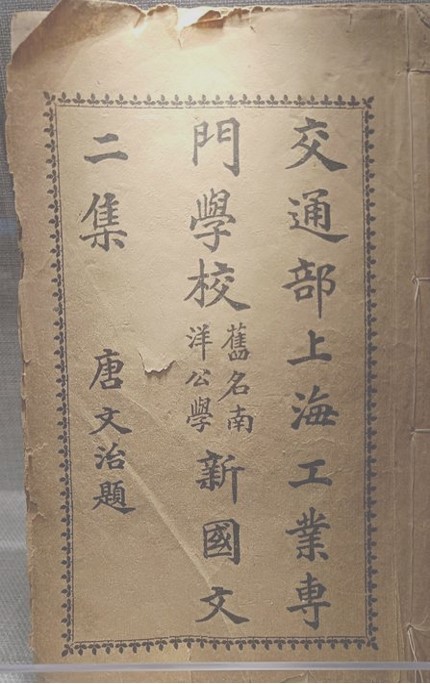 交通部上海工業専
門學校舊名南洋公學新國文
二集 唐文治題